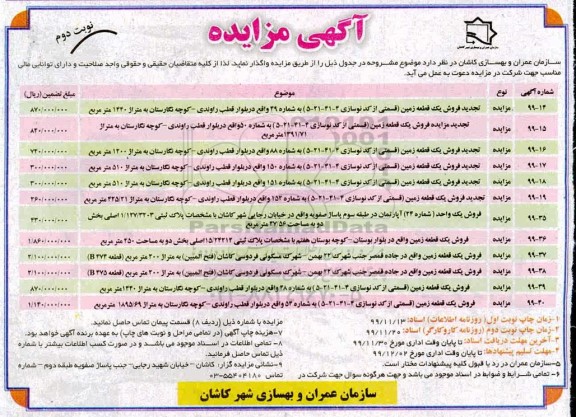 آگهی مزایده
نوبت دوم
سازمان عمران و بهسازی شهر کاشان
سازمان عمران و بهسازی کاشان در نظر دارد موضوع مشروحه در جدول ذیل را از طریق مزایده واگذار نماید. لذا از کلیه متقاضیان حقیقی و حقوقی واجد صلاحیت و دارای توانایی مالی
مناسب جهت شرکت در مزایده دعوت به عمل می آید.
شماره آگهی نوع موضوع مبلغ تضمین (ریال)
۹۹-۱۴ مزایده تجدید فروش یک قطعه زمین (قسمتی از کد نوسازی ۴-۳۱-۲۱-۵) به شماره ۴۹ واقع دربلوار قطب راوندی -کوچه نگارستان به متراژ ۱۴۴۰ متر مربع ۸۷۰/۰۰۰/۰۰۰
۹۹-۱۵ مزایده تجدید مزایده فروش یک قطعه زمین (قسمتی از کد نوسازی ۴-۳۱-۲۱-۵) به شماره ۵۰ واقع دربلوار قطب راوندی -کوچه نگارستان به متراژ
۱۳۹۱/۷۱ متر مربع ۸۴۰/۰۰۰/۰۰۰
۹۹-۱۶ مزایده تجدید فروش یک قطعه زمین (قسمتی از کد نوسازی ۴-۳۱-۲۱-۵) به شماره ۸۸ واقع دربلوار قطب راوندی -کوچه نگارستان به متراژ ۱۲۰۰ متر مربع ۷۲۰/۰۰۰/۰۰۰
۹۹-۱۷ مزایده تجدید فروش یک قطعه زمین (قسمتی از کد نوسازی ۴-۳۱-۲۱-۵) به شماره ۱۵۰ واقع دربلوار قطب راوندی -کوچه نگارستان به متراژ ۵۱۰ متر مربع ۳۰۰/۰۰۰/۰۰۰
۹۹-۱۸ مزایده تجدید فروش یک قطعه زمین (قسمتی از کد نوسازی ۴-۳۱-۲۱-۵) به شماره ۱۵۱ واقع دربلوار قطب راوندی -کوچه نگارستان به متراژ ۵۱۰ متر مربع ۳۰۰/۰۰۰/۰۰۰
۹۹-۱۹ مزایده تجدید فروش یک قطعه زمین (قسمتی از کد نوسازی ۴-۳۱-۲۱-۵) به شماره ۱۵۲ واقع دربلوار قطب راوندی -کوچه نگارستان به متراژ ۴۲۵/۲۱ متر مربع ۲۶۰/۰۰۰/۰۰۰
۹۹-۳۵ مزایده فروش یک واحد (شماره ۲۴) آپارتمان در طبقه سوم پاساژ صفویه واقع در خیابان رجایی شهر کاشان با مشخصات پلاک ثبتی ۱/۱۲۷/۳۲۰۳ اصلی بخش
دو به مساحت ۴۷/۵۶ متر مربع ۴۳۰/۰۰۰/۰۰۰
۹۹-۳۶ مزایده فروش یک قطعه زمین واقع در بلوار بوستان -کوچه بوستان هفتم با مشخصات پلاک ثبتی ۱۵/۲۴۲۱۲ اصلی بخش دو به مساحت ۲۵۰ متر مربع ۱/۸۶۰/۰۰۰/۰۰۰
۹۹-۳۷ مزایده فروش یک قطعه زمین واقع در جاده قمصر جنب شهرک ۲۲ بهمن -شهرک مسکونی فردوسی کاشان (فتح المبین) به متراژ ۲۰۰ متر مربع (قطعه B ۴۷۴) ۲/۱۰۰/۰۰۰/۰۰۰
۹۹-۳۸ مزایده فروش یک قطعه زمین واقع در جاده قمصر جنب شهرک ۲۲ بهمن -شهرک مسکونی فردوسی کاشان (فتح المبین) به متراژ ۲۰۰ متر مربع (قطعه B ۴۷۵) ۲/۱۰۰/۰۰۰/۰۰۰
۹۹-۳۹ مزایده فروش یک قطعه زمین (قسمتی از کد نوسازی ۴-۳۱-۲۱-۵) به شماره ۴۸ واقع دربلوار قطب راوندی -کوچه نگارستان به متراژ ۱۴۴۰ متر مربع ۸۷۰/۰۰۰/۰۰۰
۹۹-۴۰ مزایده فروش یک قطعه زمین (قسمتی از کد نوسازی ۴-۳۱-۲۱-۵) به شماره ۵۴ واقع دربلوار قطب راوندی -کوچه نگارستان به متراژ ۱۸۹۵/۶۹ متر مربع ۱/۱۴۰/۰۰۰/۰۰۰
۱-زمان چاپ نوبت اول (روزنامه اطلاعات) اسناد: ۹۹/۱۱/۱۳
۲-زمان چاپ نوبت دوم (روزنامه کاروکارگر) اسناد: ۹۹/۱۱/۲۰
۳-آخرین مهلت دریافت اسناد: تا پایان وقت اداری مورخ ۹۹/۱۱/۳۰
۴-مهلت تسلیم پیشنهادها: تا پایان وقت اداری مورخ ۹۹/۱۲/۰۲
۵-سازمان عمران در رد یا قبول کلیه پیشنهادات مختار است.
۶- تمامی شرایط و ضوابط در اسناد موجود می باشد و جهت هرگونه سوال جهت شرکت در
مزایده با شماره ذیل (ردیف ۸) قسمت پیمان تماس حاصل نمائید.
۷-هزینه چاپ آگهی (در تمامی مراحل و نوبت های چاپ) به عهده برنده آگهی خواهد بود.
۸- تمامی اطلاعات در اسناد موجود می باشند و در صورت کسب اطلاعات بیشتر با شماره
ذیل تماس حاصل فرمائید.
۹-نشانی برگزاره گزار: کاشان - خیابان شهید رجایی- جنب پاساژ صفویه طبقه دوم - شماره
تماس ۵۵۴۰۴۱۸۰-۰۳
سازمان عمران و بهسازی شهر کاشان
ParsNamadData